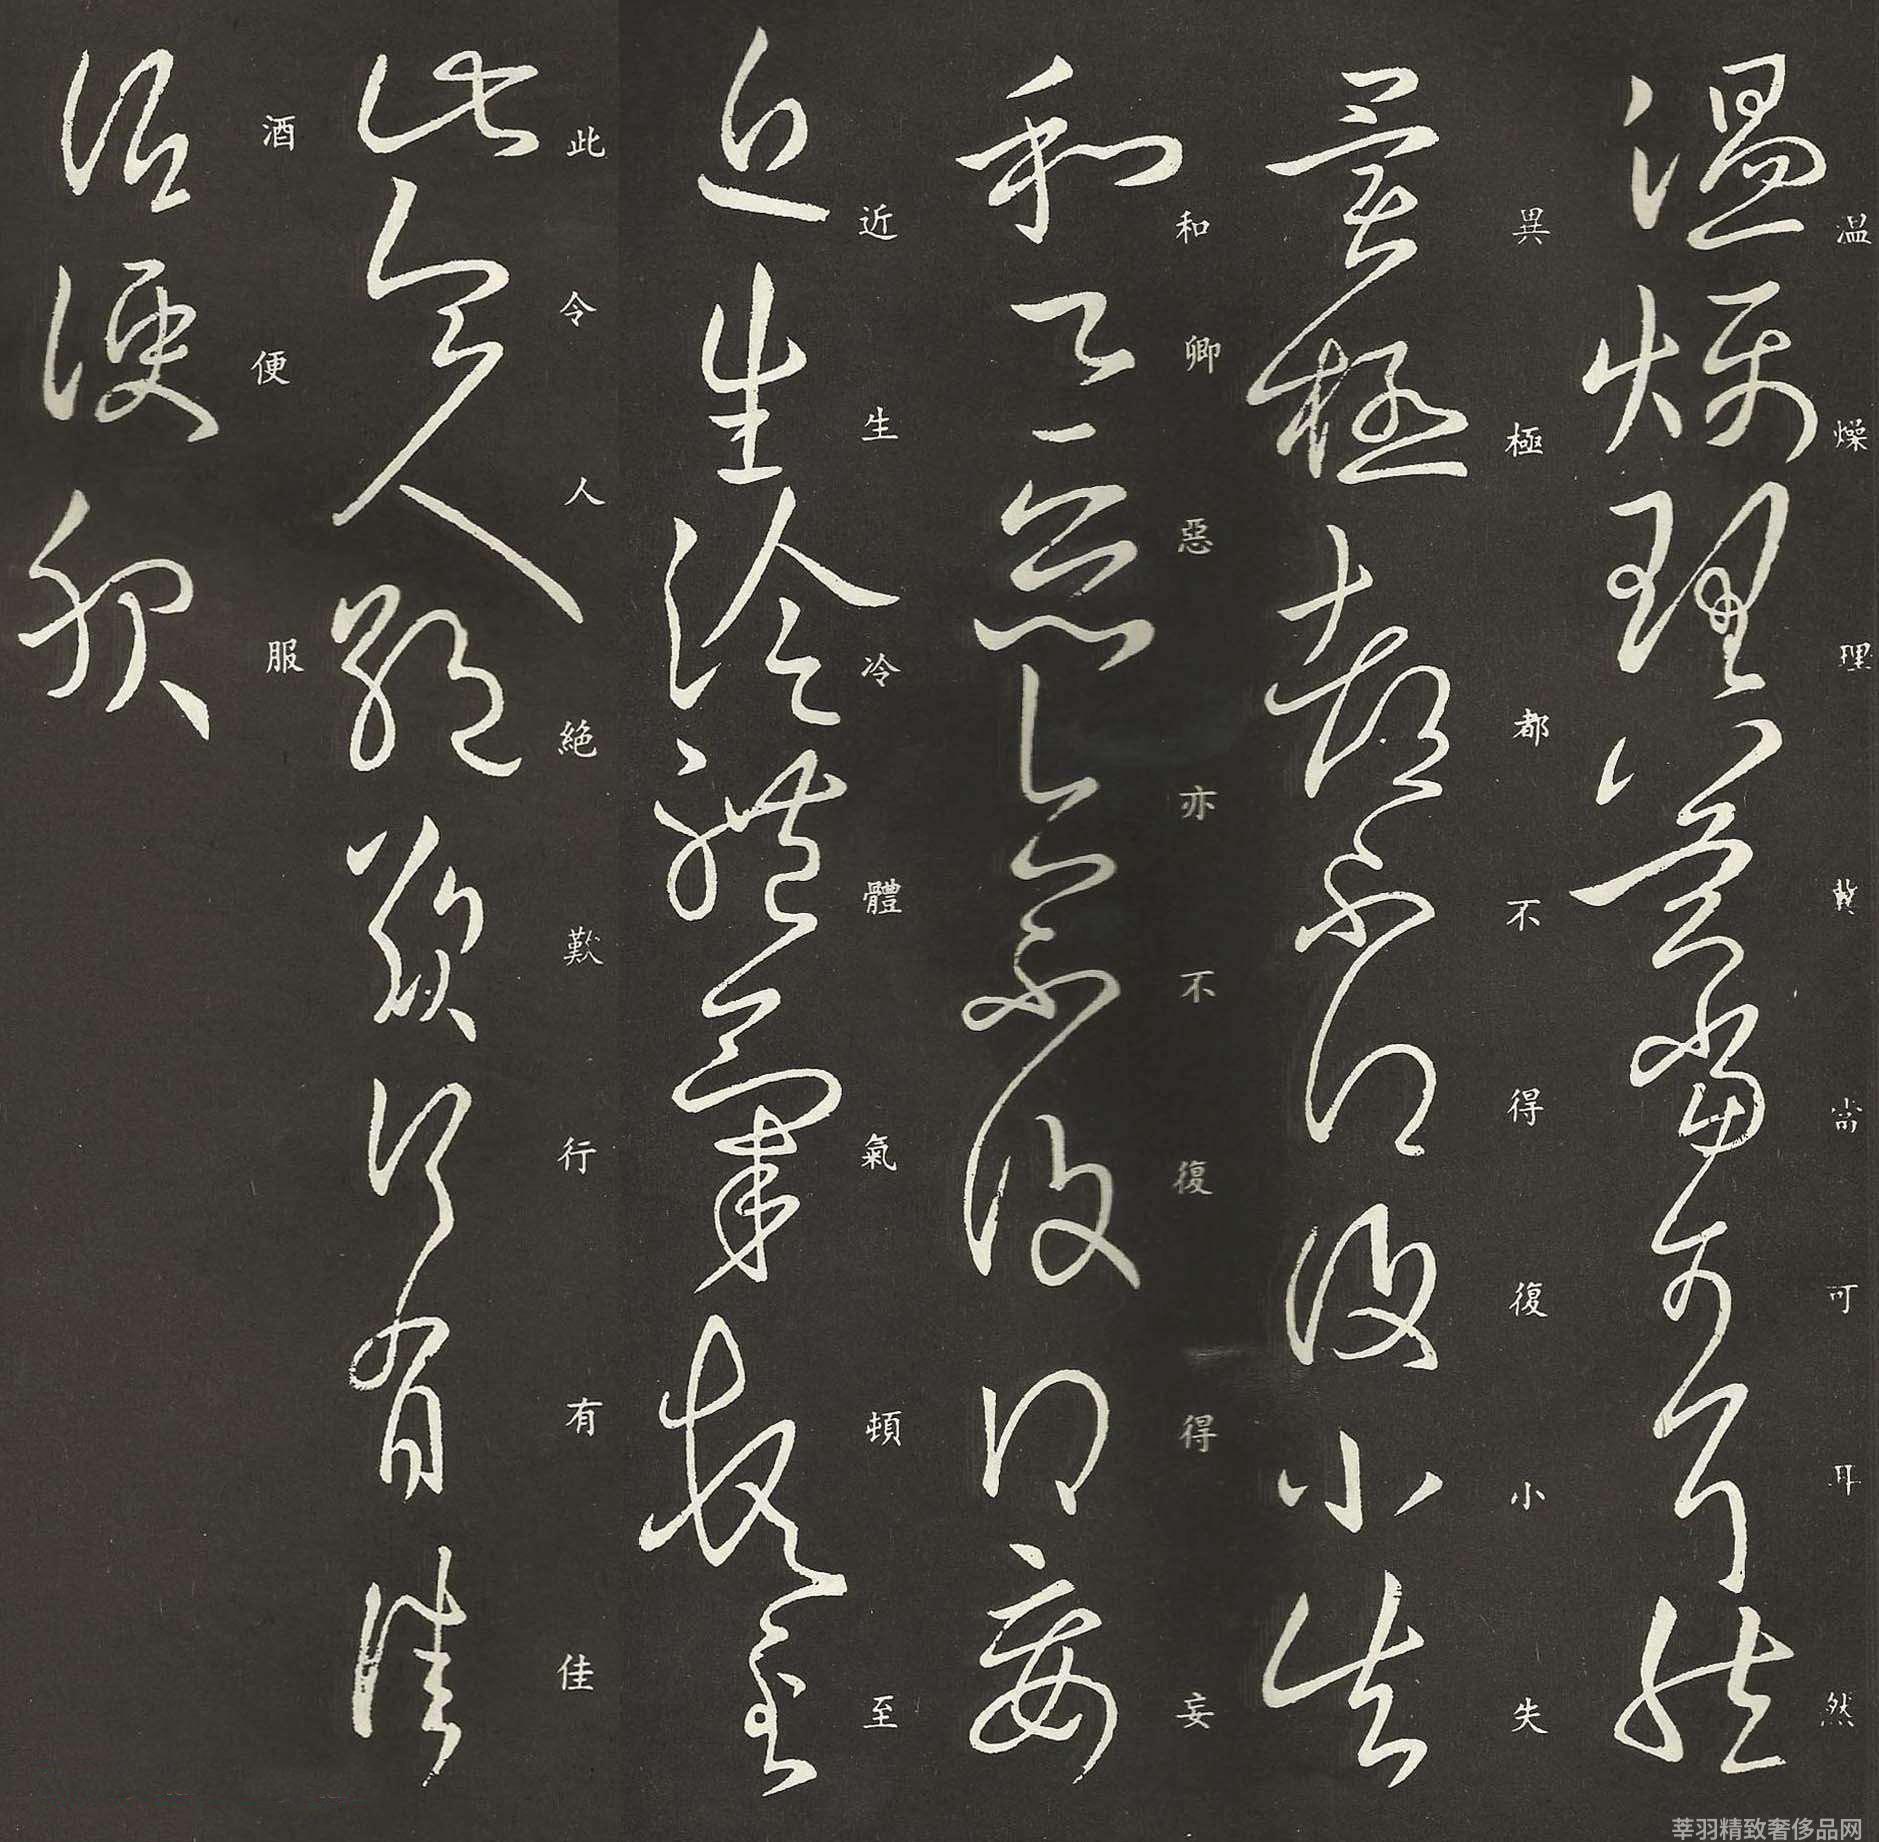 温燥理冀當可耳然
異極都不得復小失
和卿惡亦不復得妄
近生冷體氣頓至
此令人絕歎行有佳
酒便服
莘羽精致奢侈品网